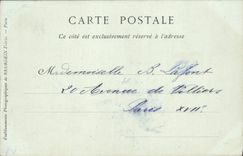 CARTE POSTALE
Ce côté est exclusivement réservé à l'adresse
Mademoiselle B. Lafont
20 Avenue de Villiers
Paris XVIIe
Etablissements Photographiques de Paris